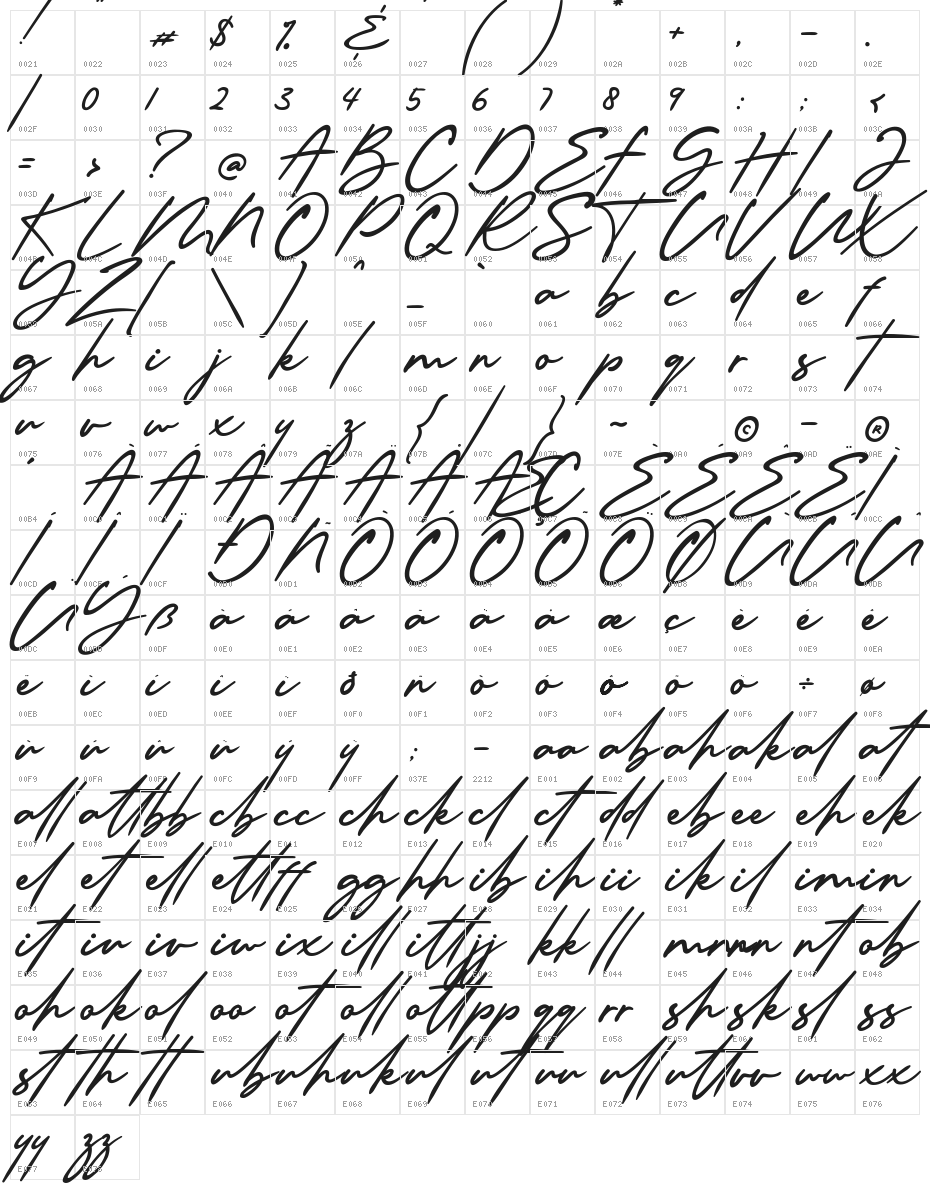 ! " # $ % & ' ( ) * + , - .
0021 0022 0023 0024 0025 0026 0027 0028 0029 002A 002B 002C 002D 002E
/ 0 1 2 3 4 5 6 7 8 9 : ; <
002F 0030 0031 0032 0033 0034 0035 0036 0037 0038 0039 003A 003B 003C
= > ? @ A B C D E F G H I J
003D 003E 003F 0040 0041 0042 0043 0044 0045 0046 0047 0048 0049 004A
K L M N O P Q R S T U V W X
004B 004C 004D 004E 004F 0050 0051 0052 0053 0054 0055 0056 0057 0058
Y Z [ \ ] ^ _ ` a b c d e f
0059 005A 005B 005C 005D 005E 005F 0060 0061 0062 0063 0064 0065 0066
g h i j k l m n o p q r s t
0067 0068 0069 006A 006B 006C 006D 006E 006F 0070 0071 0072 0073 0074
u v w x y z { | } ~ © - ®
0075 0076 0077 0078 0079 007A 007B 007C 007D 007E 00A0 00A9 00AD 00AE
´ À Á Â Ã Ä Å Æ Ç È É Ê Ë Ì
00B4 00C0 00C1 00C2 00C3 00C4 00C5 00C6 00C7 00C8 00C9 00CA 00CB 00CC
Í Î Ï Ð Ñ Ò Ó Ô Õ Ö Ø Ù Ú Û
00CD 00CE 00CF 00D0 00D1 00D2 00D3 00D4 00D5 00D6 00D8 00D9 00DA 00DB
Ü Ý ß à á â ã ä å æ ç è é ê
00DC 00DD 00DF 00E0 00E1 00E2 00E3 00E4 00E5 00E6 00E7 00E8 00E9 00EA
ë ì í î ï ð ñ ò ó ô õ ö ÷ ø
00EB 00EC 00ED 00EE 00EF 00F0 00F1 00F2 00F3 00F4 00F5 00F6 00F7 00F8
ù ú û ü ý ÿ ; − aa ab ah ak al at
00F9 00FA 00FB 00FC 00FD 00FF 037E 2212 E001 E002 E003 E004 E005 E006
all att bb cb cc ch ck cl ct dd eb ee eh ek
E007 E008 E009 E010 E011 E012 E013 E014 E015 E016 E017 E018 E019 E020
el et ell ett ff gg hh ib ih ii ik il im in
E021 E022 E023 E024 E025 E026 E027 E028 E029 E030 E031 E032 E033 E034
it iu iv iw ix ill itt jj kk ll mm nn nt ob
E035 E036 E037 E038 E039 E040 E041 E042 E043 E044 E045 E046 E047 E048
oh ok ol oo ot oll ott pp qq rr sh sk sl ss
E049 E050 E051 E052 E053 E054 E055 E056 E057 E058 E059 E060 E061 E062
st th tt ub uh uk ul ut uu ull utt vv ww xx
E063 E064 E065 E066 E067 E068 E069 E070 E071 E072 E073 E074 E075 E076
yy zz
E077 E078